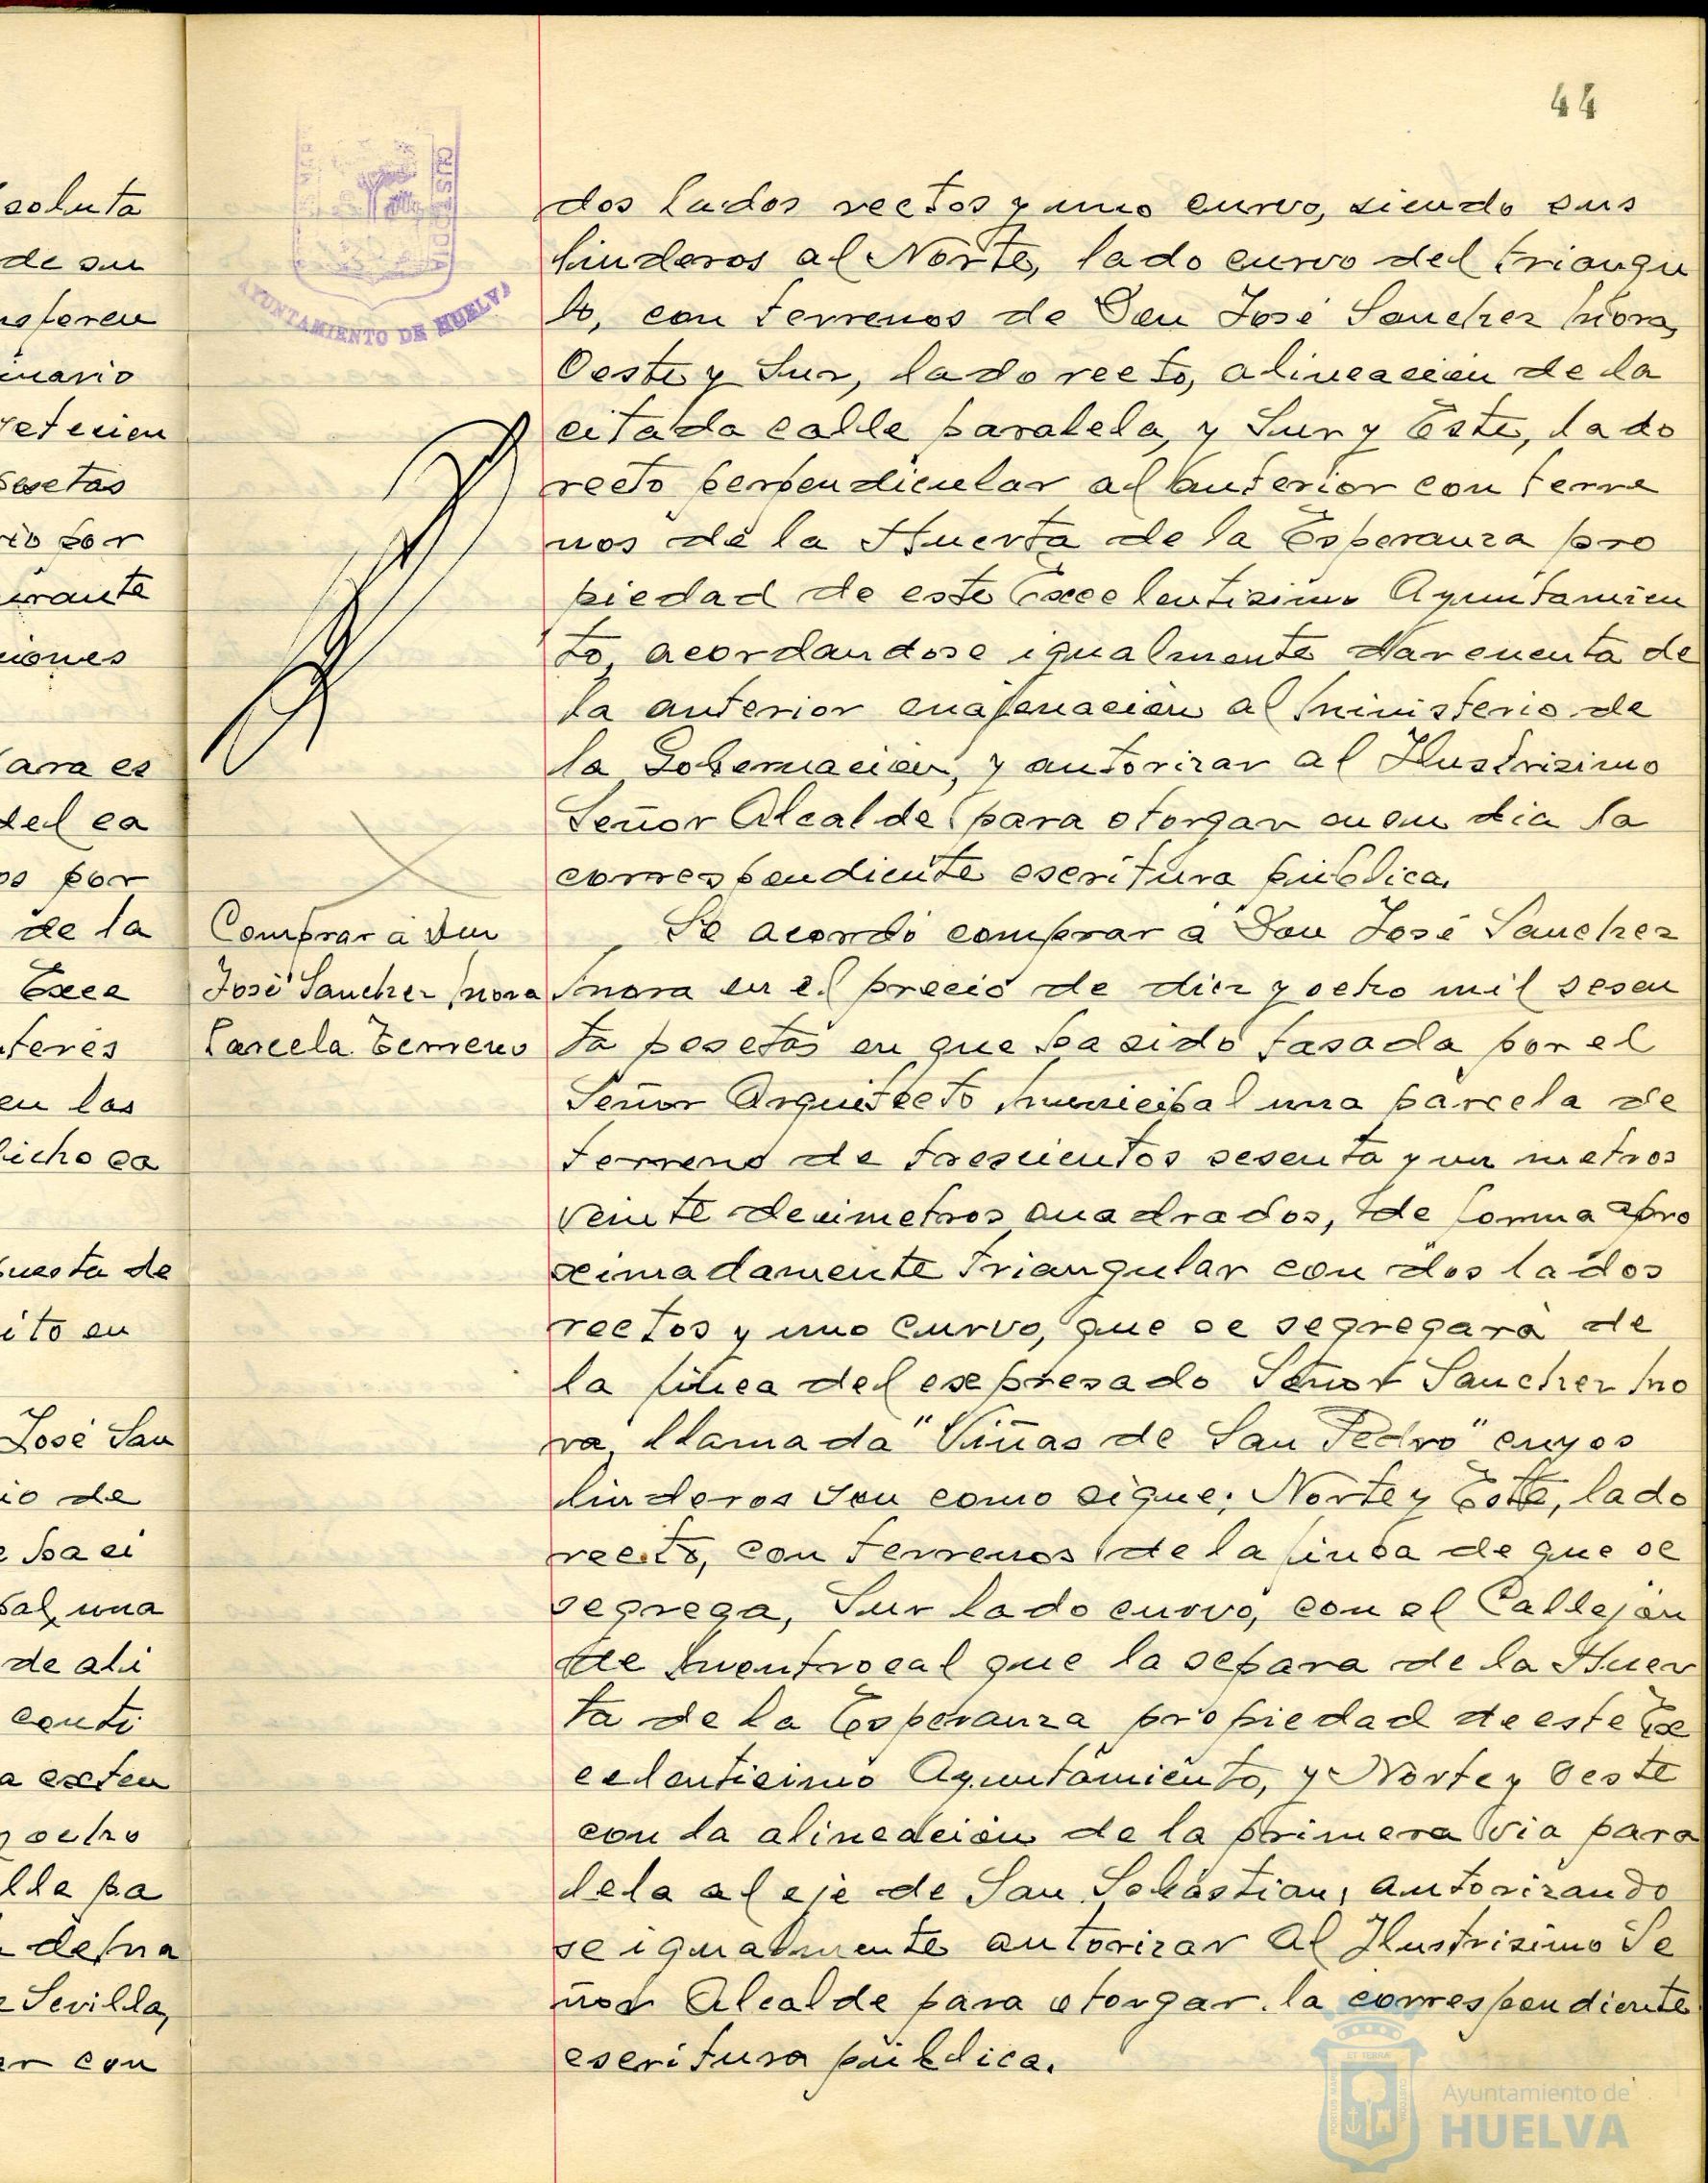 44
soluta
de su
nsferen
inario
setecien
esetas
rio por
urante
ciones
ara es
del ca
os por
de la
Exce
nteres
en las
dicho ca
puesta de
ito en
José San
io de
e ha si
pal, una
de ali
conti
a exten
y ocho
lle pa
Sevilla,
ar con
CUSTODIA
AYUNTAMIENTO DE HUELVA
Comprar a Don
José Sanchez Mora
Parcela Terreno
dos lados rectos y uno curvo, siendo sus
linderos al Norte, lado curvo del triangu
lo, con terrenos de Don José Sanchez Mora,
Oeste y Sur, lado recto, alineación de la
citada calle paralela, y Sur y Este, lado
recto perpendicular al anterior con terre
nos de la Huerta de la Esperanza pro
piedad de este Excelentisimo Ayuntamien
to, acordandose igualmente dar cuenta de
la anterior enajenación al Ministerio de
la Gobernación, y autorizar al Ilustrisimo
Señor Alcalde para otorgar en su dia la
correspondiente escritura pública.
Se acordó comprar a Don José Sanchez
Mora en el precio de diez y ocho mil sesen
ta pesetas en que ha sido tasada por el
Señor Arquitecto Municipal una parcela de
terreno de trescientos sesenta y un metros
veinte decimetros cuadrados, de forma apro
ximadamente triangular con dos lados
rectos y uno curvo, que se segregará de
la finca del expresado Señor Sanchez Mo
ra, llamada "Viñas de San Pedro" cuyos
linderos son como sigue: Norte y Este, lado
recto, con terrenos de la finca de que se
segrega, Sur lado curvo, con el Callejón
de Montrocal que la separa de la Huer
ta de la Esperanza propiedad de este Ex
celentisimo Ayuntamiento, y Norte y Oeste
con la alineación de la primera via para
lela al eje de San Sebastian, autorizando
se igualmente autorizar al Ilustrisimo Se
ñor Alcalde para otorgar la correspondiente
escritura pública.
Ayuntamiento de
HUELVA